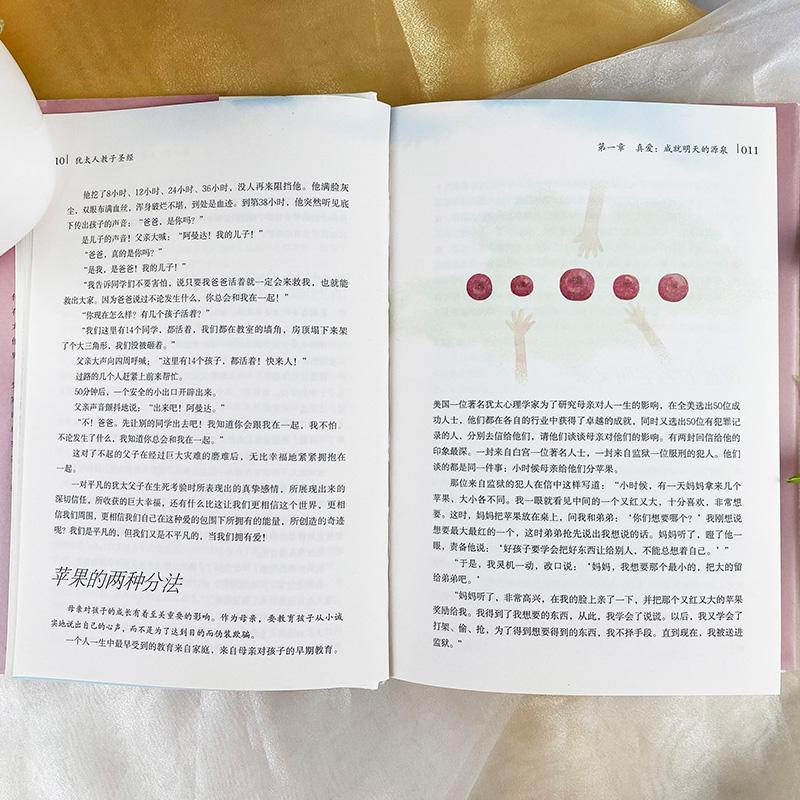 10 犹太人教子圣经
他挖了8小时、12小时、24小时、36小时，没有人再来阻挡他。他满脸灰
尘，双眼布满血丝，浑身破烂不堪，到处是血迹。到第38小时，他突然听见底
下传出孩子的声音：“爸爸，是你吗？”
是儿子的声音！父亲大喊：“阿曼达！我的儿子！”
“爸爸，真的是你吗？”
“是我，是爸爸！我的儿子！”
“我告诉同学们不要害怕，说只要我爸爸活着就一定会来救我，也就能
救出大家。因为爸爸说过不论发生什么，你总会和我在一起！”
“你现在怎么样？有几个孩子活着？”
“我们这里有14个同学，都活着，我们都在教室的墙角，房顶塌下来架
了个大三角形，我们没被砸着。”
父亲大声向四周呼喊：“这里有14个孩子，都活着！快来人！”
过路的几个人赶紧上前来帮忙。
50分钟后，一个安全的小出口开辟出来。
父亲声音颤抖地说：“出来吧！阿曼达。”
“不！爸爸。先让别的同学出去吧！我知道你会跟我在一起，我不怕。
不论发生了什么，我知道你总会和我在一起。”
这对了不起的父子在经过巨大灾难的磨难后，无比幸福地紧紧拥抱在
一起。
一对平凡的犹太父子在生死考验时所表现出的真挚感情，所展现出来的
深切信任，所收获的巨大幸福，还有什么比这让我们更相信这个世界，更相
信我们周围，更相信我们自己在这种爱的包围下所拥有的能量，所创造的奇迹
呢？我们是平凡的，但我们又是不平凡的，当我们拥有爱！
苹果的两种分法
母亲对孩子的成长有着至关重要的影响。作为母亲，要教育孩子从小诚
实地说出自己的心声，而不是为了达到目的而伪装欺骗。
一个人一生中最早受到的教育来自家庭，来自母亲对孩子的早期教育。
第一章 真爱：成就明天的源泉 011
美国一位著名犹太心理学家为了研究母亲对人一生的影响，在全美选出50位成
功人士，他们都在各自的行业中获得了卓越的成就，同时又选出50位有犯罪记
录的人，分别去信给他们，请他们谈谈母亲对他们的影响。有两封回信给他的
印象最深。一封来自白宫一位著名人士，一封来自监狱一位服刑的犯人。他们
谈的都是同一件事：小时候母亲给他们分苹果。
那位来自监狱的犯人在信中这样写道：“小时候，有一天妈妈拿来几个
苹果，大小各不同。我一眼就看见中间的一个又红又大，十分喜欢，非常想
要。这时，妈妈把苹果放在桌上，问我和弟弟：‘你们想要哪个？’我刚想说
想要最大最红的一个，这时弟弟抢先说出我想说的话。妈妈听了，瞪了他一
眼，责备他说：‘好孩子要学会把好东西让给别人，不能总想着自己。’”
“于是，我灵机一动，改口说：‘妈妈，我想要那个最小的，把大的留
给弟弟吧。’
“妈妈听了，非常高兴，在我的脸上亲了一下，并把那个又红又大的苹果
奖励给我。我得到了我想要的东西，从此，我学会了说谎。以后，我又学会了
打架、偷、抢，为了得到想要得到的东西，我不择手段。直到现在，我被送进
监狱。”